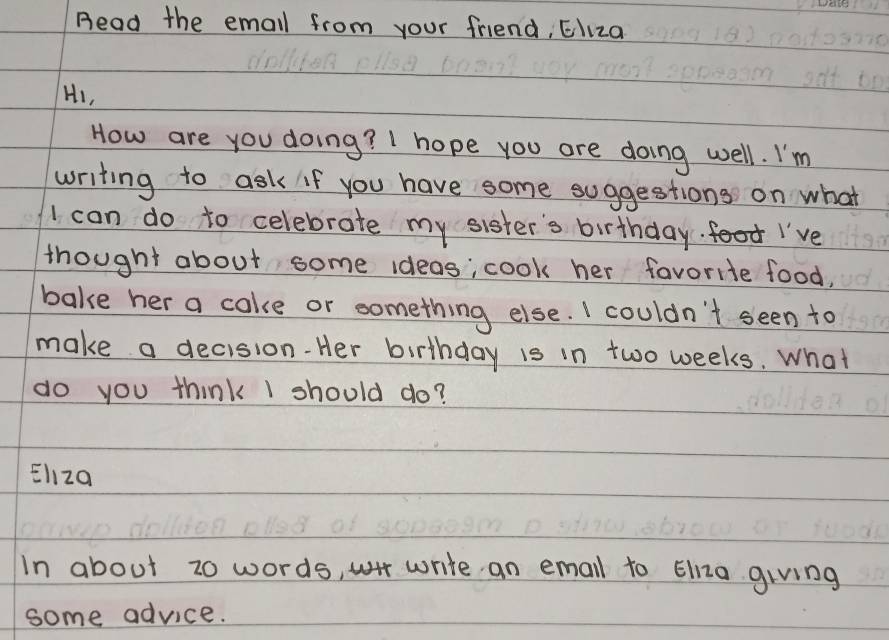 Read the email from your friend, Eliza
Hi,
How are you doing? I hope you are doing well. I'm
writing to ask if you have some suggestions on what
I can do to celebrate my sister's birthday. food I've
thought about some ideas; cook her favorite food,
bake her a cake or something else. I couldn't seen to
make a decision. Her birthday is in two weeks. What
do you think I should do?
Eliza
In about 20 words, wr write an email to Eliza giving
some advice.